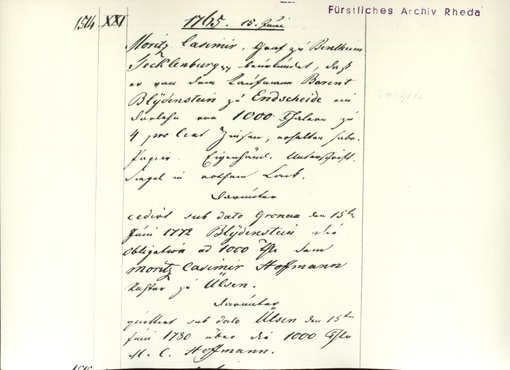 Fürstliches Archiv Rheda
1514 XXI 1765. 15. Juni
Moritz Casimir, Graf zu Bentheim
Tecklenburg beurkundet, daß
er von dem Kaufmann Barent
Blÿdenstein zu Endscheide ein
Darlehn von 1000 Thalern zu
4 pro Cent Zinsen, erhalten habe.
Papier. Eigenhänd. Unterschrift.
Siegel in rothem Lack.
Darunter
cedirt sub dato Gronau den 15ten
Juni 1772 Blÿdenstein die
Obligation ad 1000 Thlr dem
Moritz Casimir Hoffmann
Küster zu Ülsen.
Darunter
quittirt sub dato Ülsen den 15ten
Juni 1780 über die 1000 Thlr
M. C. Hoffmann.